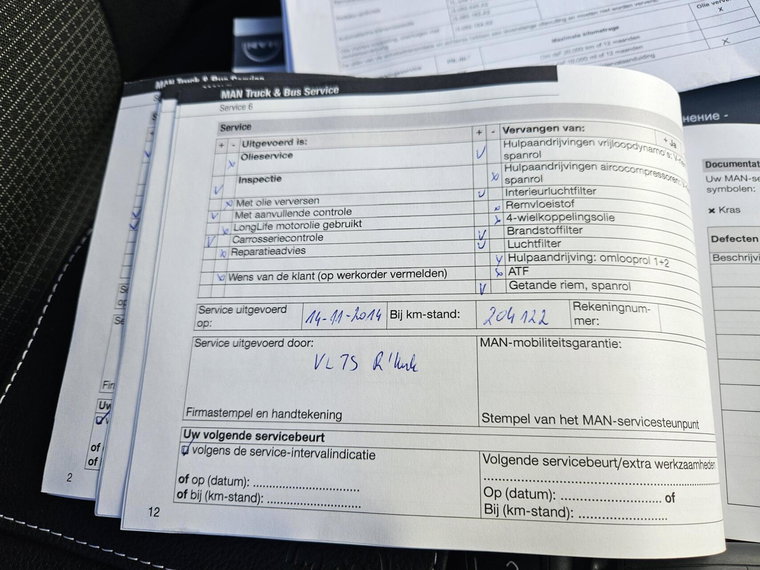 MAN Truck & Bus Service
MAN Truck & Bus Service
Service 6
Service
+ - Uitgevoerd is:
Olieservice
Inspectie
Met olie verversen
Met aanvullende controle
LongLife motorolie gebruikt
Carrosseriecontrole
Reparatieadvies
Wens van de klant (op werkorder vermelden)
+ - Vervangen van:
Hulpaandrijvingen vrijloopdynamo's:
spanrol
Hulpaandrijvingen aircocompressoren:
spanrol
Interieurluchtfilter
Remvloeistof
4-wielkoppelingsolie
Brandstoffilter
Luchtfilter
Hulpaandrijving: omlooprol 1+2
ATF
Getande riem, spanrol
Service uitgevoerd
op:
14-11-2014
Bij km-stand:
204122
Rekeningnum-
mer:
Service uitgevoerd door:
VLTS
Firmastempel en handtekening
MAN-mobiliteitsgarantie:
Stempel van het MAN-servicesteunpunt
Uw volgende servicebeurt
volgens de service-intervalindicatie
of op (datum): ..............................
of bij (km-stand): ..........................
Volgende servicebeurt/extra werkzaamheden
Op (datum): .......................... of
Bij (km-stand): ..........................
12
2
of
of
MAN
Maximale kilometrage
x
нение -
Documentat
Uw MAN-se
symbolen:
× Kras
Defecten
Beschrijvi